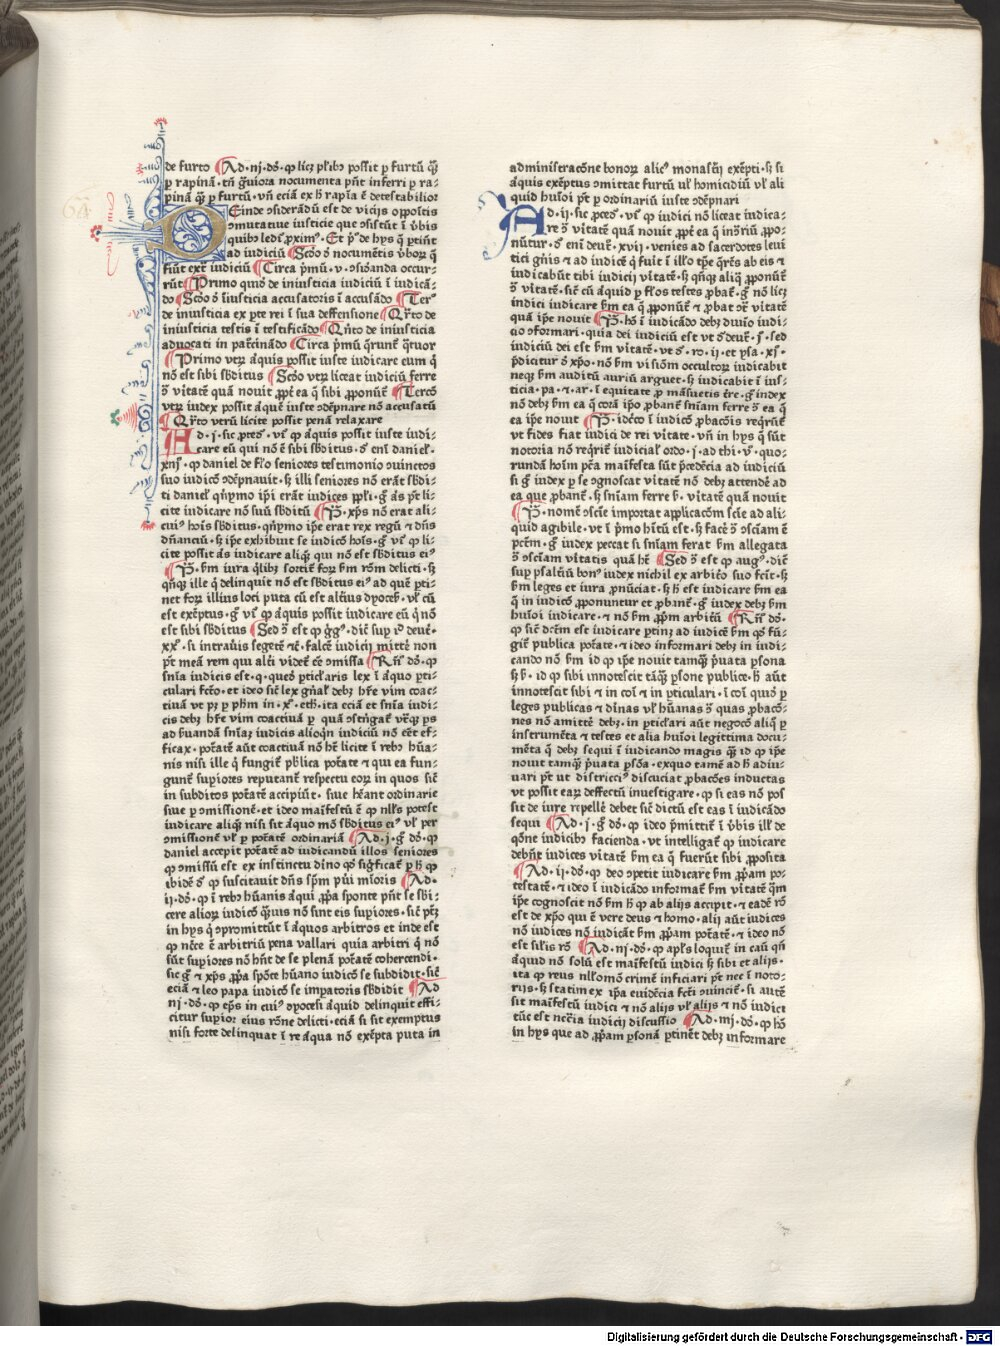 de furto Ad·iij·dō· ꝙ licꝫ pl̄ibꝫ possit ꝑ furtū q̄ꝫ
ꝑ rapinā· tn̄ g̃uiora nocumenta pn̄t inferri ꝑ ra⸗
pinā q̄ꝫ ꝑ furtū· vn̄ eciā ex h̄ rapīa ē detestabilior
Deinde ꝯsiderādū est de vicijs oppositis
ꝯmutatiue iusticie que ꝯsistūt ī v̄bis
quibꝫ ledit̄ ꝓximꝰ· Et pͦ de hys q̄ ptin̄t
ad iudiciū Scd̄o d̄ nocumētis v̄borꝫ q̄
fiūt ext̄ iudiciū Circa pͥmū·v·ꝯsidāda occur⸗
rūt Primo quidē de iniusticia iudiciū ī iudicā⸗
do Scd̄o d̄ īiusticia accusatoris ī accusādo Terͦ
de iniusticia ex pte rei ī sua deffensione Qͣrto de
iniusticia testis ī testificādo Qͥnto de iniusticia
aduocati in patͦcinādo Circa pͥmū q̄runt̄ qͣtuor
Primo vtꝝ aliquis possit iuste iudicare eum qͥ
nō est sibi sb̄ditus Scd̄o vtꝝ liceat iudiciū ferre
ꝯͣ vitatē quā nouit ꝓpt̄ ea q̄ sibi ꝓponūt̄ Tercō
vtꝝ iudex possit aliquē iuste ꝯdēpnare nō accusatū
Qͣrto vtrū licite possit penā relaxare
Ad·i·sic ꝓcedͥ· vr̄ ꝙ aliquis possit iuste iudi⸗
care eū qui nō ē sibi sb̄ditus· d̄r enī daniel̄·
xiij· ꝙ daniel de fl̄o seniores testimonio ꝯuinctos
suo iudicō ꝯdēpnauit· sꝫ illi seniores nō erāt sb̄di⸗
ti daniel̄ qͥnymo ip̄i erāt iudices ppl̄i· g̊ aliqͥs pt̄ li⸗
cite iudicare nō suū sb̄ditū P̄· xp̄s nō erat ali⸗
cuiꝰ hoīs sb̄ditus· qͥnymo ip̄e erat rex regū ⁊ dn̄s
dn̄anciū· sꝫ ip̄e exhibuit se iudicō hoīs· g̊ vr̄ ꝙ li⸗
cite possit aliqͥs iudicare aliquē qui nō est sb̄ditus eiꝰ
P̄· ẜm iura qͥlibꝫ sortit̄ forꝫ ẜm rōm delicti· sꝫ
qn̄qꝫ ille qͥ delinquit nō est sb̄ditus eiꝰ ad quē pti⸗
net forꝫ illius loci puta cū est alteriꝰ dyoceẜ· vl̄ cū
est exēptus· g̊ vr̄ ꝙ aliquis possit iudicare eū qͥ nō
est sibi sb̄ditus Sed ꝯͣ est ꝙ g̊gͥ· dic̄ suꝑ id̄ deut̄·
xxͦ· si intrauis segetē ⁊c̄· falcē iudicij mittē non
pt̄ meā rem qui alt̄i videt̄ ēe ꝯmissa Rn̄ dō· ꝙ
sn̄ia iudicis est·q·quedā pticl̄aris lex ī aliquo pti⸗
culari fcō· et ideo sic̄ lex gn̄al̄ debꝫ hr̄e vim coac⸗
tiuā vt pꝫ ꝑ ph̄m in·x·eth̄· ita eciā et sn̄ia iudi⸗
cis debꝫ hr̄e vim coactiuā ꝑ quā ꝯstr̄gat̄ vt̄qꝫ ps
ad ẜuandā sn̄iaꝫ iudicis alioqͥn iudiciū nō eēt ef⸗
ficax· ptāte aūt coactiuā nō hꝫ licite ī rebꝫ hūa⸗
nis nisi ille qͥ fungit̄ pb̄lica ptāte ⁊ qui ea fun⸗
gunt̄ supiores reputant̄ respectu eoꝝ in quos sic̄
in subditos ptātē accipiūt· siue hēant ordinarie
siue ꝑ ꝯmissionē· et ideo maīfestū ē ꝙ nll̄s potest
iudicare aliquē nisi sit aliquo mō sb̄ditus eiꝰ vl̄ per
ꝯmissionē vl̄ ꝑ ptātē ordinariā Ad·i·g̊ dō· ꝙ
daniel accepit ptātē ad iudicandū illos seniores
ꝙ ꝯmissū est ex instinctu dīno qd̄ sigficat̄ ꝑ hͦ ꝙ
ibidē d̄r ꝙ suscitauit dn̄s sp̄m pūi mīoris Ad·
ii·dō· ꝙ ī rebꝫ hūanis aliqui ꝓpa sponte pn̄t se sb̄i⸗
cere alioꝝ iudicō qͣuis nō sint eis supiores· sic̄ ptꝫ
in hys qͥ ꝯpromittūt ī aliquos arbitros et inde est
ꝙ nc̄ce ē arbitriū pena vallari quia arbitri qͥ nō
sūt supiores nō hn̄t de se plenā ptātē cohercendi·
sic g̊ ⁊ xp̄s ꝓpa spōte hūano iudicō se subdidit· sic̄
eciā ⁊ leo papa iudicō se impatoris sb̄didit Ad
iij·dō· ꝙ ep̄s in cuiꝰ dyocesi aliquid delinquit effi⸗
citur supior eius rōne delicti· eciā si sit exemptus
nisi forte delinquat ī re aliqua nō exēpta puta in
administracōne bonoꝝ alicꝰ monast̄ij exēpti· sꝫ si
aliquis exēptus ꝯmittat furtū vl̄ homicidiū vl̄ ali
quid huiꝰmōi pt̄ ꝑ ordinariū iuste ꝯdēpnari
Ad·ii·sic ꝓcedͥ· vr̄ ꝙ iudici nō liceat iudica⸗
re ꝯͣ vitatē quā nouit ꝓpt̄ ea q̄ in ꝯͣriū ꝓpo⸗
nūtur· d̄r enī deut̄· xvij· venies ad sacerdotes leui
tici gn̄is ⁊ ad iudicē qͥ fuit̄ ī illo tpe q̄res ab eis ⁊
iudicabūt tibi iudicij vitatē· sꝫ qn̄qꝫ aliqͣ ꝓponūt̄
ꝯͣ vitatē· sic̄ cū aliquid ꝑ fl̄os testes ꝓbat̄· g̊ nō licꝫ
iudici iudicare ẜm ea q̄ ꝓponūt̄ ⁊ ꝓbāt̄ ꝯͣ vitatē
quā ip̄e nouit P̄· hō ī iudicādo debꝫ diuīo iudi⸗
cio ꝯformari· quia dei iudiciū est vt d̄r deut̄·i· sed
iudiciū dei est ẜm vitatē· vt d̄r·ro·ii·et ysa·xi·
pdicitur d̄ xpō· nō ẜm visiōm occuloꝝ iudicabit
neqꝫ ẜm auditū auriū arguet· sꝫ iudicabit ī ius⸗
ticia·pa·⁊·ar·ī equitate ꝓ māsuetis tr̄e· g̊ iudex
nō debꝫ ẜm ea q̄ corā ip̄o ꝓbant̄ sn̄iam ferre ꝯͣ ea q̄
ea ip̄e nouit P̄· idc̄co ī iudicō ꝓbacōis reqͥrūt̄
vt fides fiat iudici de rei vitate· vn̄ in hys q̄ sūt
notoria nō reqͥrit̄ iudicial̄ ordo·i·ad thi·v·quo⸗
rundā hoīm pcā maīfesta sūt pcēdēcia ad iudiciū
si g̊ iudex ꝑ se ꝯgnoscat vitatē nō debꝫ attendē ad
ea que ꝓbant̄· sꝫ sn̄iam ferre ẜm vitatē quā nouit
P̄· nomē ꝯscīe importat applicacōm scīe ad ali⸗
quid agibile· vt ī pͥmo hītū est· sꝫ facē ꝯͣ ꝯsciam ē
pctm̄· g̊ iudex peccat si sn̄iam ferat ẜm allegata
ꝯͣ ꝯsciam vitatis quā hꝫ Sed ꝯͣ est ꝙ augꝰ· dic̄
suꝑ psalt̄iū bonꝰ iudex nichil ex arbitͦo suo fcit· sꝫ
ẜm leges et iura ꝓnūciat· sꝫ hͦ est iudicare ẜm ea
q̄ in iudicō ꝓponuntur et ꝓbant̄· g̊ iudex debꝫ ẜm
huiꝰmōi iudicare· ⁊ nō ẜm ꝓpm arbitiū Rn̄ dō·
ꝙ sic̄ dc̄m est iudicare ptinꝫ ad iudicē ẜm qd̄ fū⸗
git̄ publica ptāte· ⁊ ideo informari debꝫ in iudi⸗
cando nō ẜm id ꝙ ip̄e nouit tamqͣꝫ pͥuata psona
sꝫ ẜm id ꝙ sibi innotescit tāqͣꝫ psone publice· hͦ aūt
innotescit sibi ⁊ in coī ⁊ in pticulari· ī coī quidē ꝑ
leges publicas ⁊ dīnas vl̄ hūanas ꝯͣ quas ꝓbacō⸗
nes nō amittē debꝫ· in pticl̄ari aūt negocō aliqͦ ꝑ
instrumēta ⁊ testes et alia huiꝰmōi legittima docu⸗
mēta q̄ debꝫ sequi ī iudicando magis qͣꝫ id ꝙ ip̄e
nouit tamqͣꝫ pͥuata psōa· exquo tamē ad hͦ adiu⸗
uari pt̄ ut districciꝰ discuciat ꝓbacōes inductas
vt possit eaꝝ deffectū inuestigare· ꝙ si eas nō pos
sit de iure repellē debet sic̄ dictū est eas ī iudicādo
sequi Ad·i·g̊ dō· ꝙ ideo pͥmittit̄ ī v̄bis ill̄ de
qōne iudicibꝫ facienda· vt intelligat̄ ꝙ iudicare
debn̄t iudices vitatē ẜm ea q̄ fuerūt sibi ꝓposita
Ad·ii·dō· ꝙ deo ꝯpetit iudicare ẜm ꝓpam po⸗
testatē· ⁊ ideo ī iudicādo informat̄ ẜm vitatē qͣm
ip̄e cognoscit nō ẜm hͦ ꝙ ab alijs accipit· ⁊ eadē rō
est de xpō qui ē vere deus ⁊ homo· alij aūt iudices
nō iudicāt ẜm ꝓpam ptātē· ⁊ ideo nō
est sil̄is rō Ad·iij·dō· ꝙ apl̄s loquit̄ in casu qn̄
aliquid nō solū est maīfestū iudici sꝫ sibi et alijs·
ita ꝙ reus nll̄omō crimē inficiari pt̄ nec ī noto⸗
rijs· sꝫ statim ex ip̄a euidēcia fcti ꝯuincit̄· si autē
sit maīfestū iudici ⁊ nō alijs vl̄ alijs ⁊ nō iudici
tūc est ncc̄ria iudicij discussio Ad·iiij·dō· ꝙ hō
in hys que ad ꝓpam psonā ptinēt debꝫ informare
Digitalisierung gefördert durch die Deutsche Forschungsgemeinschaft - DFG